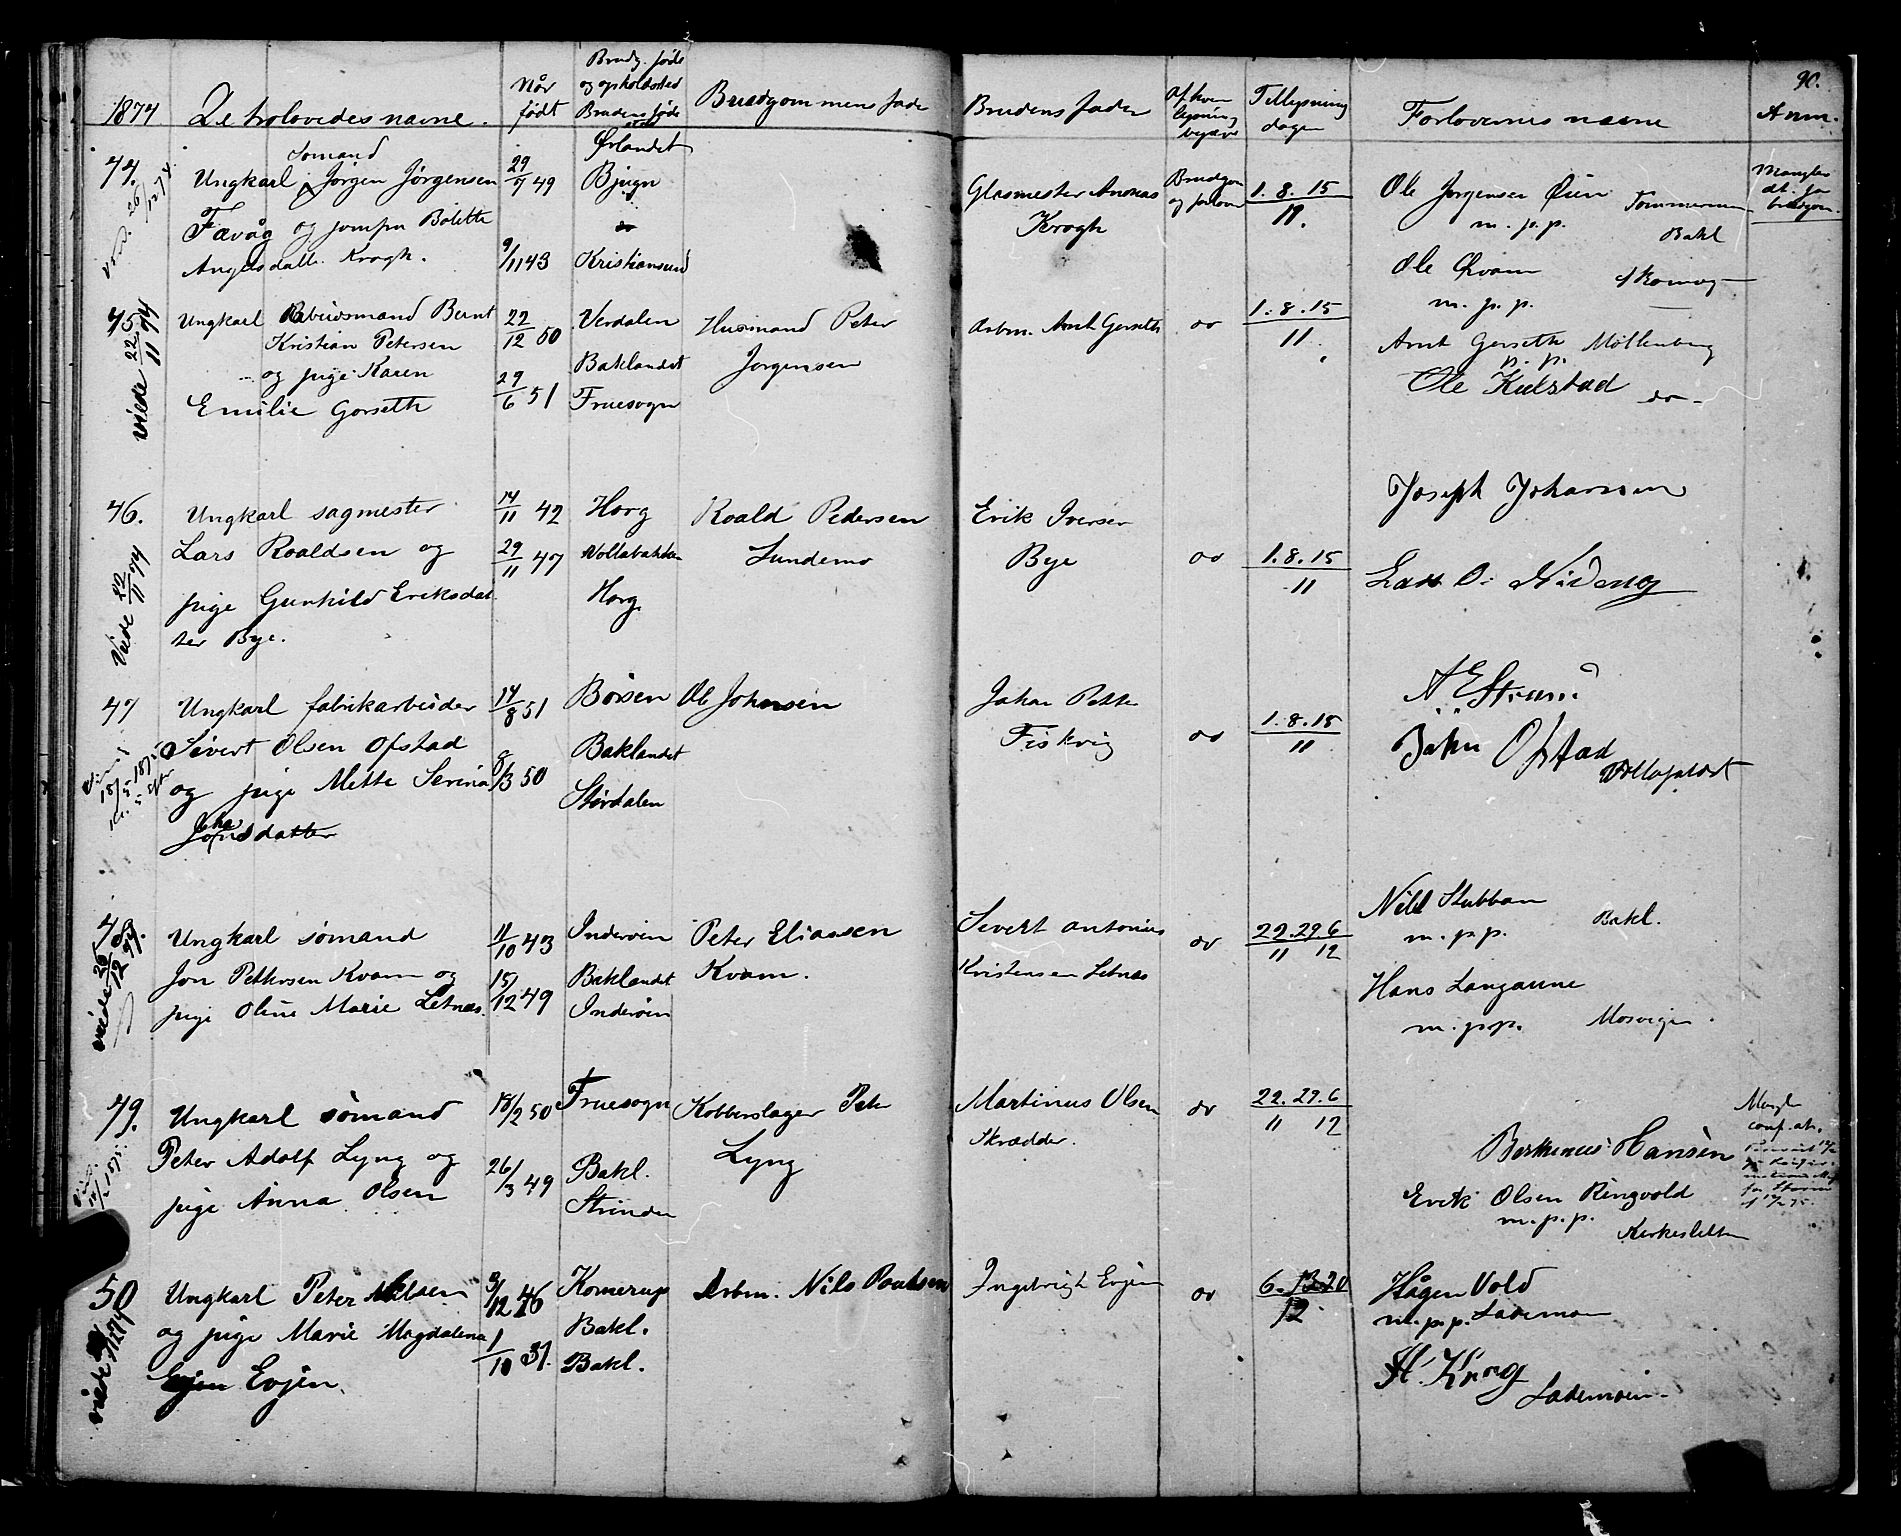 1874
De trolovedes navne.
Når født
Brudg. føde og opholdssted Brudens føde
Brudgommens fader
Brudens fader
Af hvem lysning begært
Tillysnings dage
Forlovernes navne
90.
Anm.
74.
Sømand
Ungkarl Jörgen Jörgensen
Fævåg og jomfru Bolette
Krogh.
29/7 49
9/11 43
Ørlandet
Bjugn
do
Kristiansund
Glasmester Andreas
Krogh
Brudgom og forlover
1. 8. 15
11.
Ole Jørgensen Øien
m. p. p.
Tømmermand
Bakl
Ole Qvam
m. p. p.
Mangler
dt. for
brudgom.
45
viede 22/11 74
Ungkarl Arbeidsmand Bernt
Kristian Petersen
og pige Karen
Emilie Gorseth
22/12 50
29/6 51
Verdalen
Baklandet
Fruesogn
Husmand Peter
Jørgensen
Arbm. Arnt Gorseth
do
1. 8. 15
11.
Arnt Gorseth Möllenberg
p. p.
Ole Kulstad do-
46.
Viede 22/11 74
Ungkarl sagmester
Lars Roaldsen og
pige Gunhild Eriksdat
ter Bye.
14/11 42
29/11 47
Horg
Horg
Roald Pedersen
Sundemo
Erik Iversen
Bye
do
1. 8. 15
11
Joseph Johansen
47
Ungkarl fabrikarbeider
Sivert Olsen Ofstad
og pige Mette Serina
14/8 51
8/3 50
Börsen
Baklandet
Størdalen
Ole Johnsen
Johan Petter
Fiskvig
do
1. 8. 15
11
John Ofstad
48.
viede 26/12 74.
Ungkarl sømand
Jon Pettersen Kvam og
pige Oline Marie Letnæs.
11/10 43
15/12 49
Inderöen
Baklandet
Inderöen
Peter Eliassen
Kvam.
Sivert Antonius
Kristensen Letnæs
do
22. 29. 6
11 12
Nils Stubban
m. p. p.
Bakl.
Hans Langaune
m. p. p. Mosvigen.
49.
Ungkarl sömand
Peter Adolf Lyng og
pige Anna Olsen
18/2 50
26/3 49
Fruesogn
Bakl.
Strinden
Kobberslager Peter
Lyng
Martinus Olsen
Skrædder.
do
22. 29. 6
11 12
Hansen
Erik Olsen Ringvold
m. p. p.
Kirkesletten
Mangler
conf. at.
50
Ungkarl Peter Nilsen
og pige Marie Magdalena
Evjen.
3/12 46
1/10 37.
Bakl.
Bakl.
Arbm. Nils Paulsen
Ingebrigt Evjen
do
6. 13. 20
12
Hågen Vold
m. p. p. Lademoen
H. Krog
Lademoen.